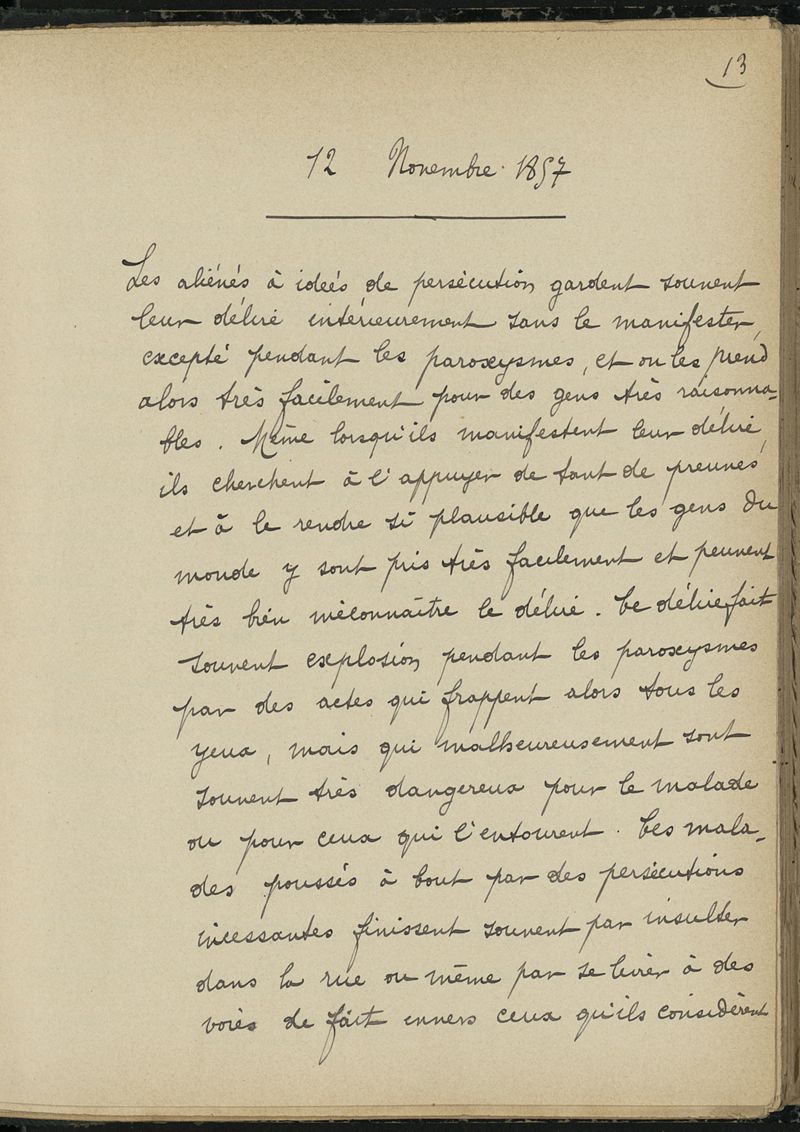 13
12 Novembre 1857
Les aliénés à idées de persécution gardent souvent
leur délire intérieurement sans le manifester,
excepté pendant les paroxysmes, et on les prend
alors très facilement pour des gens très raisonna-
bles. Même lorsqu'ils manifestent leur délire,
ils cherchent à l'appuyer de tant de preuves
et à le rendre si plausible que les gens du
monde y sont pris très facilement et peuvent
très bien méconnaître le délire. Ce délire fait
souvent explosion pendant les paroxysmes
par des actes qui frappent alors tous les
yeux, mais qui malheureusement sont
souvent très dangereux pour le malade
ou pour ceux qui l'entourent. Ces mala-
des poussés à bout par des persécutions
incessantes finissent souvent par insulter
dans la rue ou même par se livrer à des
voies de fait envers ceux qu'ils considèrent